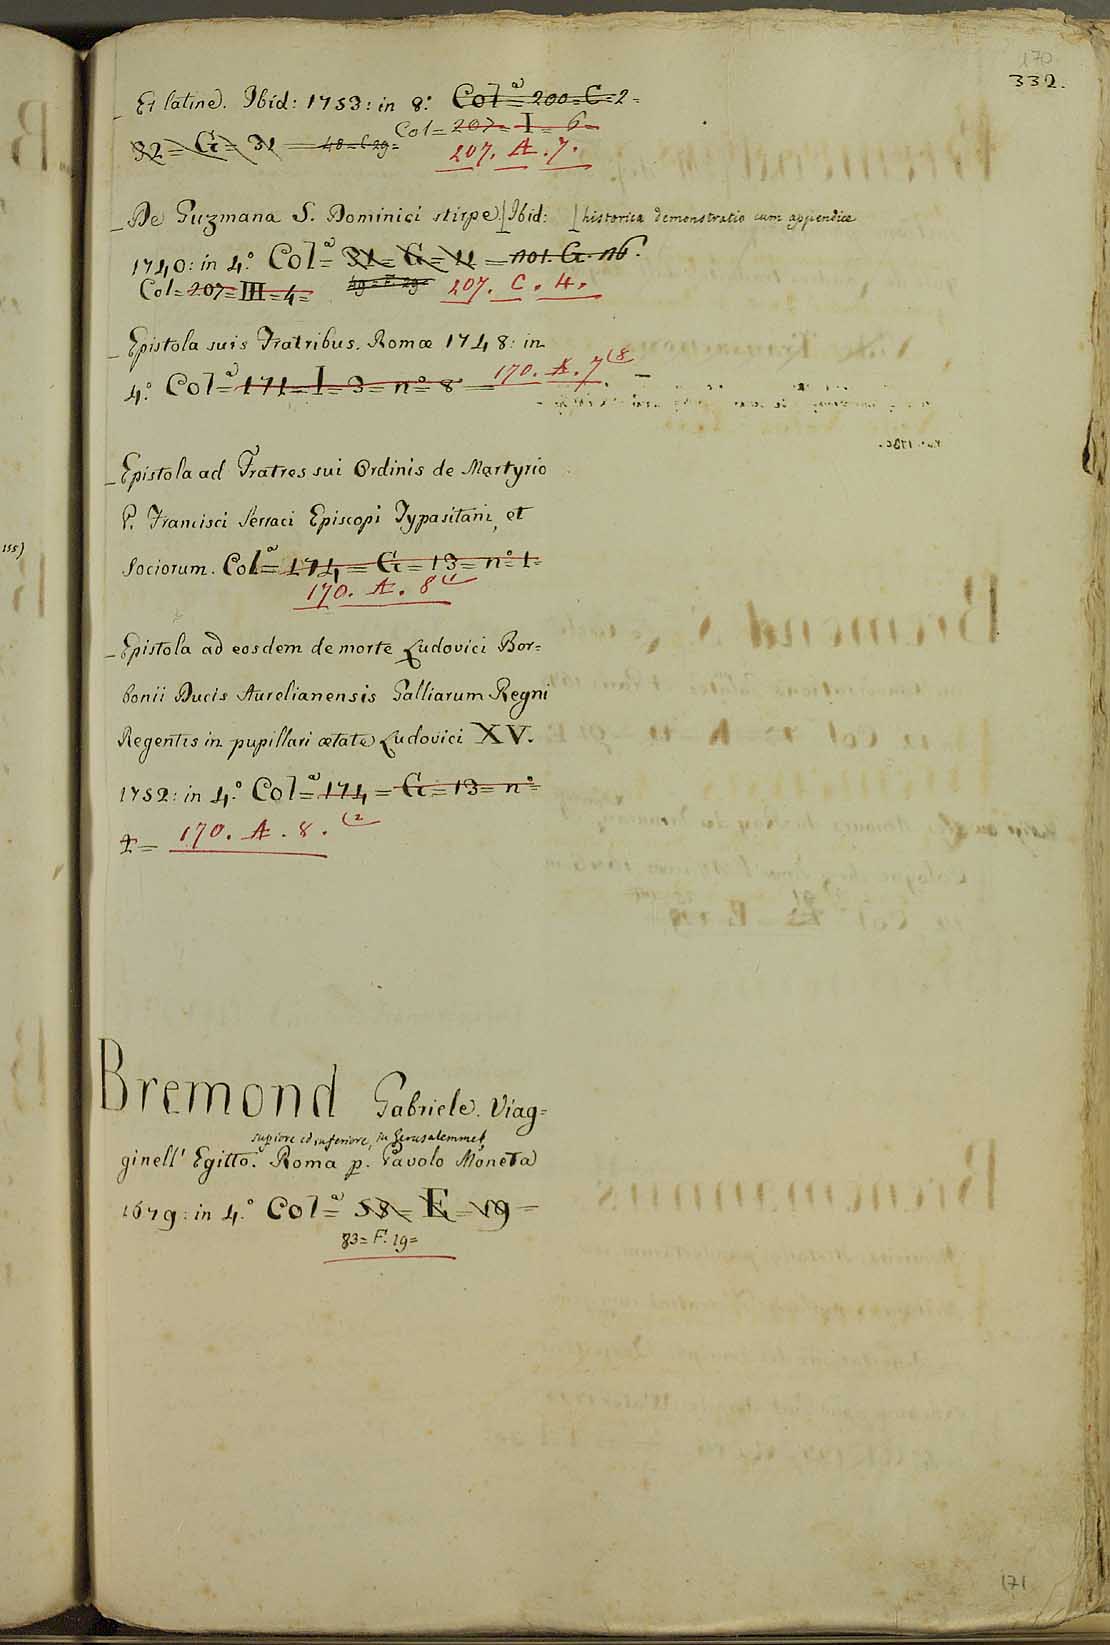 170
332.
Et latine. Ibid: 1753: in 8.° Colª= 200=C=2=
32= G= 31 = 48=C 29= Col= 207= I= 6=
207. A. 7.
De Guzmana S. Dominici stirpe [Ibid: [historica demonstratio cum appendice
1740: in 4.° Colª= 31= G= 11 = 101. G. 16.
Col= 207= III= 4= 49= F. 29= 207. C. 4.
Epistola suis Fratribus. Romæ 1748: in
4.° Colª= 171= I= 3= n.°= 8 = 170. A. 7 (8
Epistola ad Fratres sui Ordinis de Martyrio
P. Francisci Serraci Episcopi Typasitani, et
Sociorum. Colª= 174= G= 13= n.°= 1=
170. A. 8 (1
155)
Epistola ad eosdem de morte Ludovici Bor=
bonii Ducis Aurelianensis Galliarum Regni
Regentis in pupillari ætate Ludovici XV.
1752: in 4.° Colª= 174= G= 13= n.°=
1= 170. A. 8. (2
Bremond Gabriele. Viag=
supiore ed inferiore, in Gerusalemme &
gi nell' Egitto. Roma p. Pavolo Moneta
1679: in 4.° Colª= 58= E= 19=
83= F. 19=
171